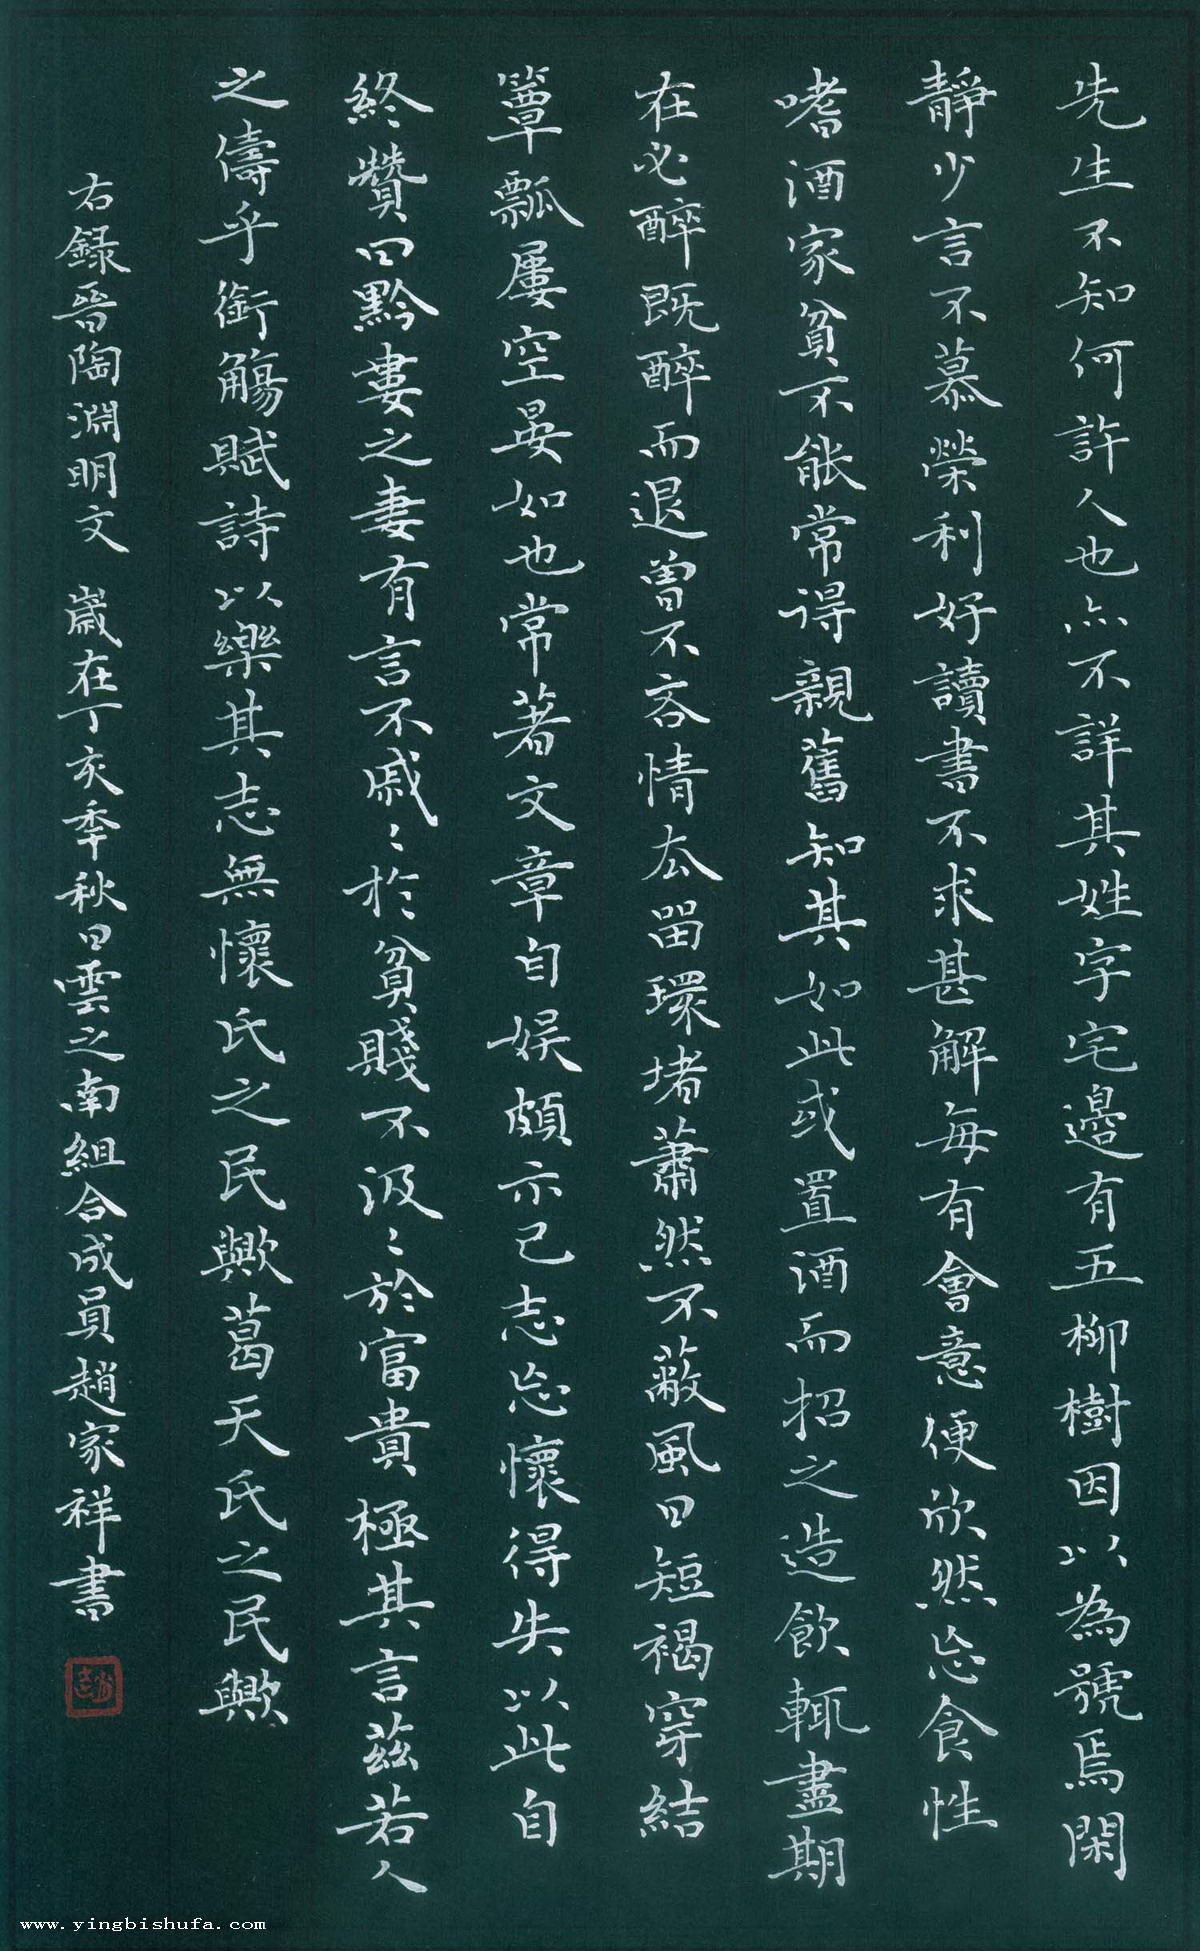 先生不知何許人也亦不詳其姓字宅邊有五柳樹因以為號焉閑
靜少言不慕榮利好讀書不求甚解每有會意便欣然忘食性
嗜酒家貧不能常得親舊知其如此或置酒而招之造飲輒盡期
在必醉既醉而退曾不吝情去留環堵蕭然不蔽風日短褐穿結
簞瓢屢空晏如也常著文章自娛頗示己志忘懷得失以此自
終贊曰黔婁之妻有言不戚〻於貧賤不汲〻於富貴極其言茲若人
之儔乎銜觴賦詩以樂其志無懷氏之民歟葛天氏之民歟
右録晉陶淵明文 歲在丁亥季秋日雲之南組合成員趙家祥書
www.yingbishufa.com